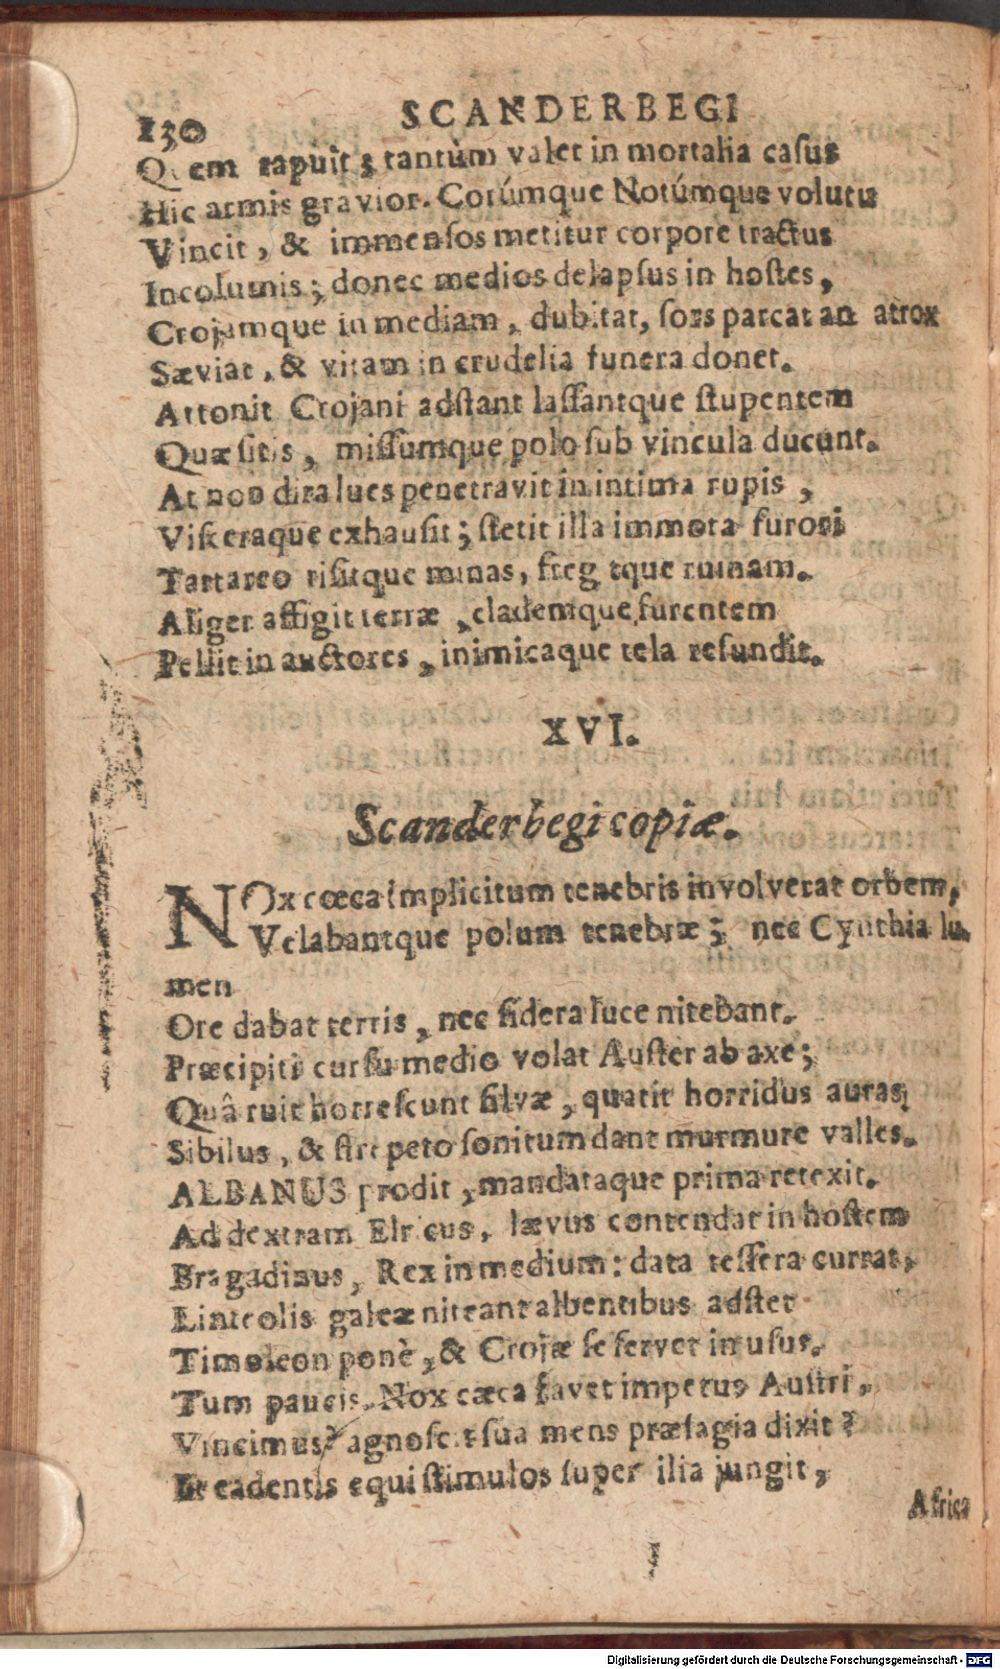 130 SCANDERBEGI
Quem rapuit; tantùm valet in mortalia casus
Hic armis gravior. Corúmque Notúmque volutu
Vincit, & immensos metitur corpore tractus
Incolumis; donec medios delapsus in hostes,
Crojamque in mediam, dubitat, sors parcat an atrox
Sæviat, & vitam in crudelia funera donet.
Attonit Crojani adstant lassantque stupentem
Quæsitis, missumque polo sub vincula ducunt.
At non dira lues penetravit in intima rupis,
Visceraque exhausit; stetit illa immota furori
Tartareo risitque minas, fregitque ruinam.
Aliger affigit terræ, clademque furentem
Pellit in auctores, inimicaque tela refundit.
XVI.
Scanderbegi copiæ.
NOx cœca implicitum tenebris involverat orbem,
Velabantque polum tenebræ; nec Cynthia lu-
men
Ore dabat terris, nec sidera luce nitebant.
Præcipiti cursu medio volat Auster ab axe;
Quâ ruit horrescunt silvæ, quatit horridus auras
Sibilus, & strepeto sonitum dant murmure valles.
ALBANUS prodit, mandataque prima retexit.
Ad dextram Elricus, lævus contendat in hostem
Bragadinus, Rex in medium: data tessera currat,
Linteolis galeæ niteant albentibus adstet
Timoleon ponè, & Crojæ se servet in usus.
Tum paucis. Nox cæca favet impetus Austri.
Vincimus? agnoscit sua mens præsagia dixit?
Et cadentis equi stimulos super ilia jungit,
Africa
Digitalisierung gefördert durch die Deutsche Forschungsgemeinschaft - DFG